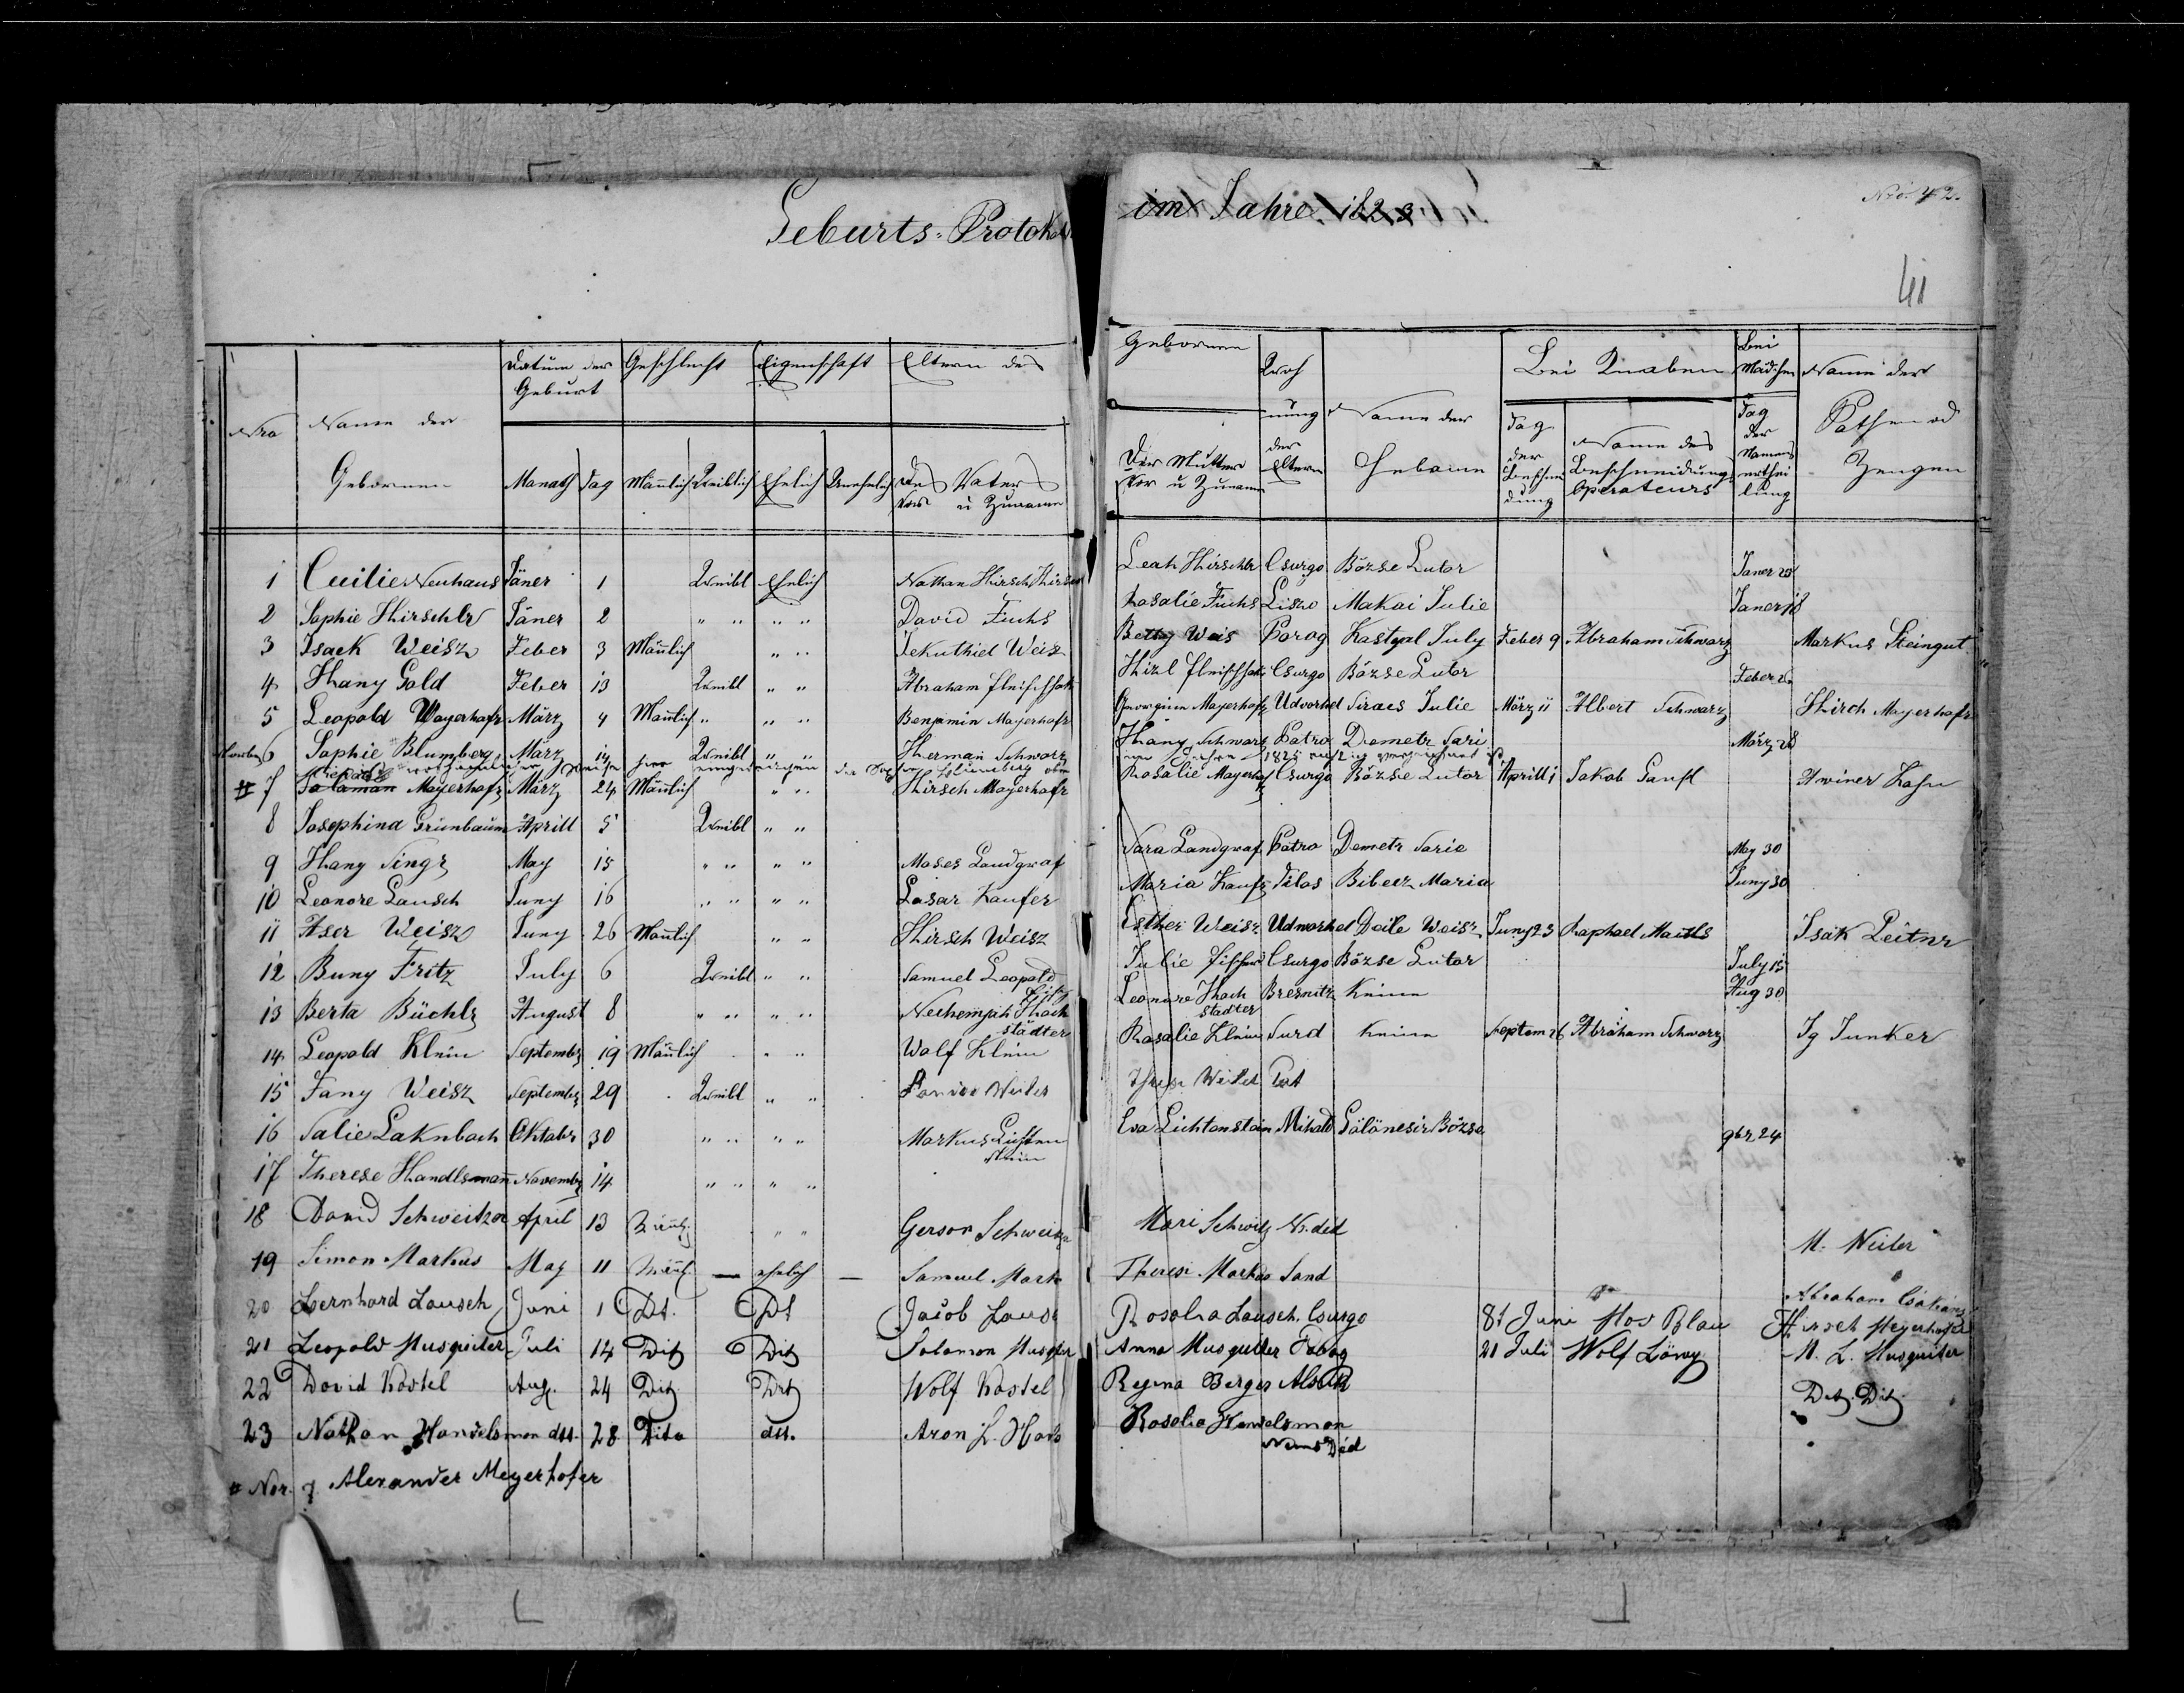 Geburts-Protokoll
im Jahre
Nro. 42.
41
Nro
Name der Gebornen
Datum der Geburt
Geschlecht
Eigenschaft
Eltern des
Gebornen
Bei Knaben
Bei Mädchen
Name der Pathen od Zeugen
Monath Tag Männlich Weiblich Ehelich Unehelich Des Vaters Vor u Zuname
Der Mutter Vor u Zuname
Wohnung der Eltern
Name der Hebame
Tag der Beschneidung
Name des Beschneidungs Operateurs
Tag der Namens ertheilung
1 Cecilie Neuhaus Jäner 1 Weibl Ehelich Nathan Hirsch Leah Hirschlr Csurgo Bözse Lutor Janer
2 Sophie Hirschlr Jäner 2 " " " " David Fuchs Rosalie Fuchs Liszo Makai Julie Janer 18
3 Isack Weisz Feber 3 Männlich " " Jekuthiel Weisz Betty Weis Porog Kastyal July Feber 9 Abraham Schwarz Markus Steingut
4 Hany Gold Feber 13 Weibl " " Abraham Fleischhak Hizl Fleischhak Csurgo Bözse Lutor Feber
5 Leopold Mayerhofr März 4 Männlich " " " Benjamin Mayerhofr Mayerhofr Udvorhel Siraes Julie März 11 Albert Schwarz Hirch Mayerhofr
6 Sophie Blumberg März Weibl " " Herman Schwarz Hany Schwarz Patro Demetr Sari März 28
# 7 Salaman Mayerhofr März 24 Männlich " " Hirsch Mayerhofr Rosalie Mayerhof Csurgo Bözse Lutor Aprill 1 Jakob Sanft
8 Josephina Grünbaum Aprill 5 Weibl " "
9 Hany Singr May 15 " " " " Moses Landgraf Sara Landgraf Patro Demetr Sarie May 30
10 Leonore Lausch Juny 16 " " " " Lasar Kaufer Maria Kaufr Silos Bibecz Maria Juny 30
11 Aser Weisz Juny 26 Männlich " " Hirsch Weisz Esther Weisz Udworhel Deile Weisz Juny 23 Raphael Maitls Isak Leitnr
12 Buny Fritz July 6 Weibl " " Samuel Leopold Julie Csurgo Bözse Lutor July 15
13 Berta Büchlr August 8 " " " " Nechemjah Hochstädter Leonore Hochstadter Bresnitz Keine Aug 30
14 Leopold Klein Septembr 19 Männlich " " Wolf Klein Rosalie Klein Surd Keine Septem 26 Abraham Schwarz Ig Junker
15 Fany Weisz Septembr 29 Weibl " "
16 Salie Laknbach Oktobr 30 " " " " Markus Lichtenstein Eva Lichtenstein Mihald Bözse 9br 24
17 Therese Handlsmañ Novembr 14 " " " "
18 David Schweitzer April 13 " " Gerson Schweitzr Mari Schwitz N. ded
19 Simon Markus May 11 — ehelich — Samuel Mark Theresi Markus Sand M. Neiler
20 Bernhard Lausch Juni 1 Dt. Dt Jacob Lausch Rosalia Lausch. Csurgo 8t Juni Mos Blau Abraham
21 Leopold Musquiter Juli 14 Dit Dit Solomon Musqter Anna Musquiter 21 Juli Wolf Löwy Hirsch Meyerhofer
22 David Kastel Aug. 24 Dit Dit Wolf Kastel Regina Berger M. L. Musquiter
23 Nathan Handelsman dtt. 28 Dito dtt. Aron L. Rosalia Handelsman Nemes Déd Dit. Dit.
# Nor. 7. Alexander Meyerhofer